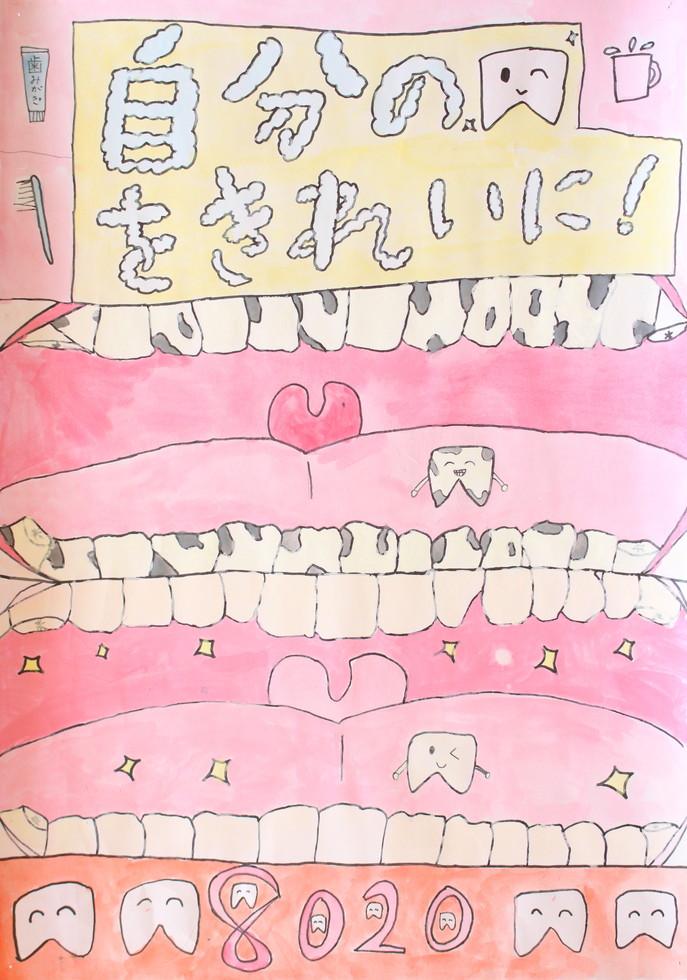 歯みがき
自分の
をきれいに!
8020